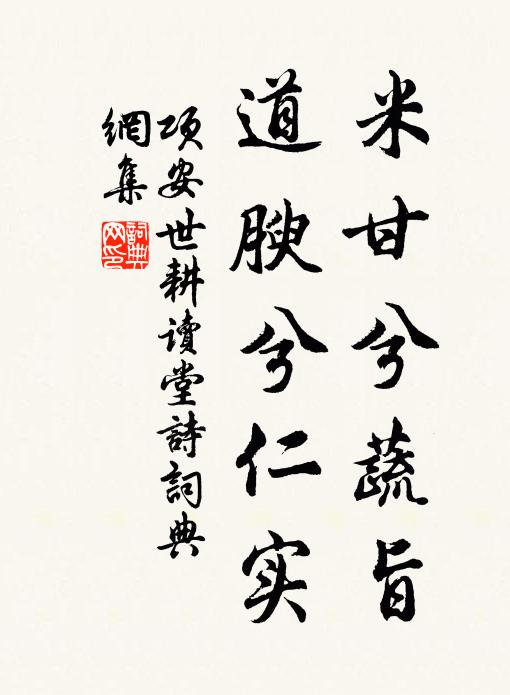 米甘兮蔬旨
道腴兮仁实
项安世耕读堂詩詞典
網集
詞典
网印